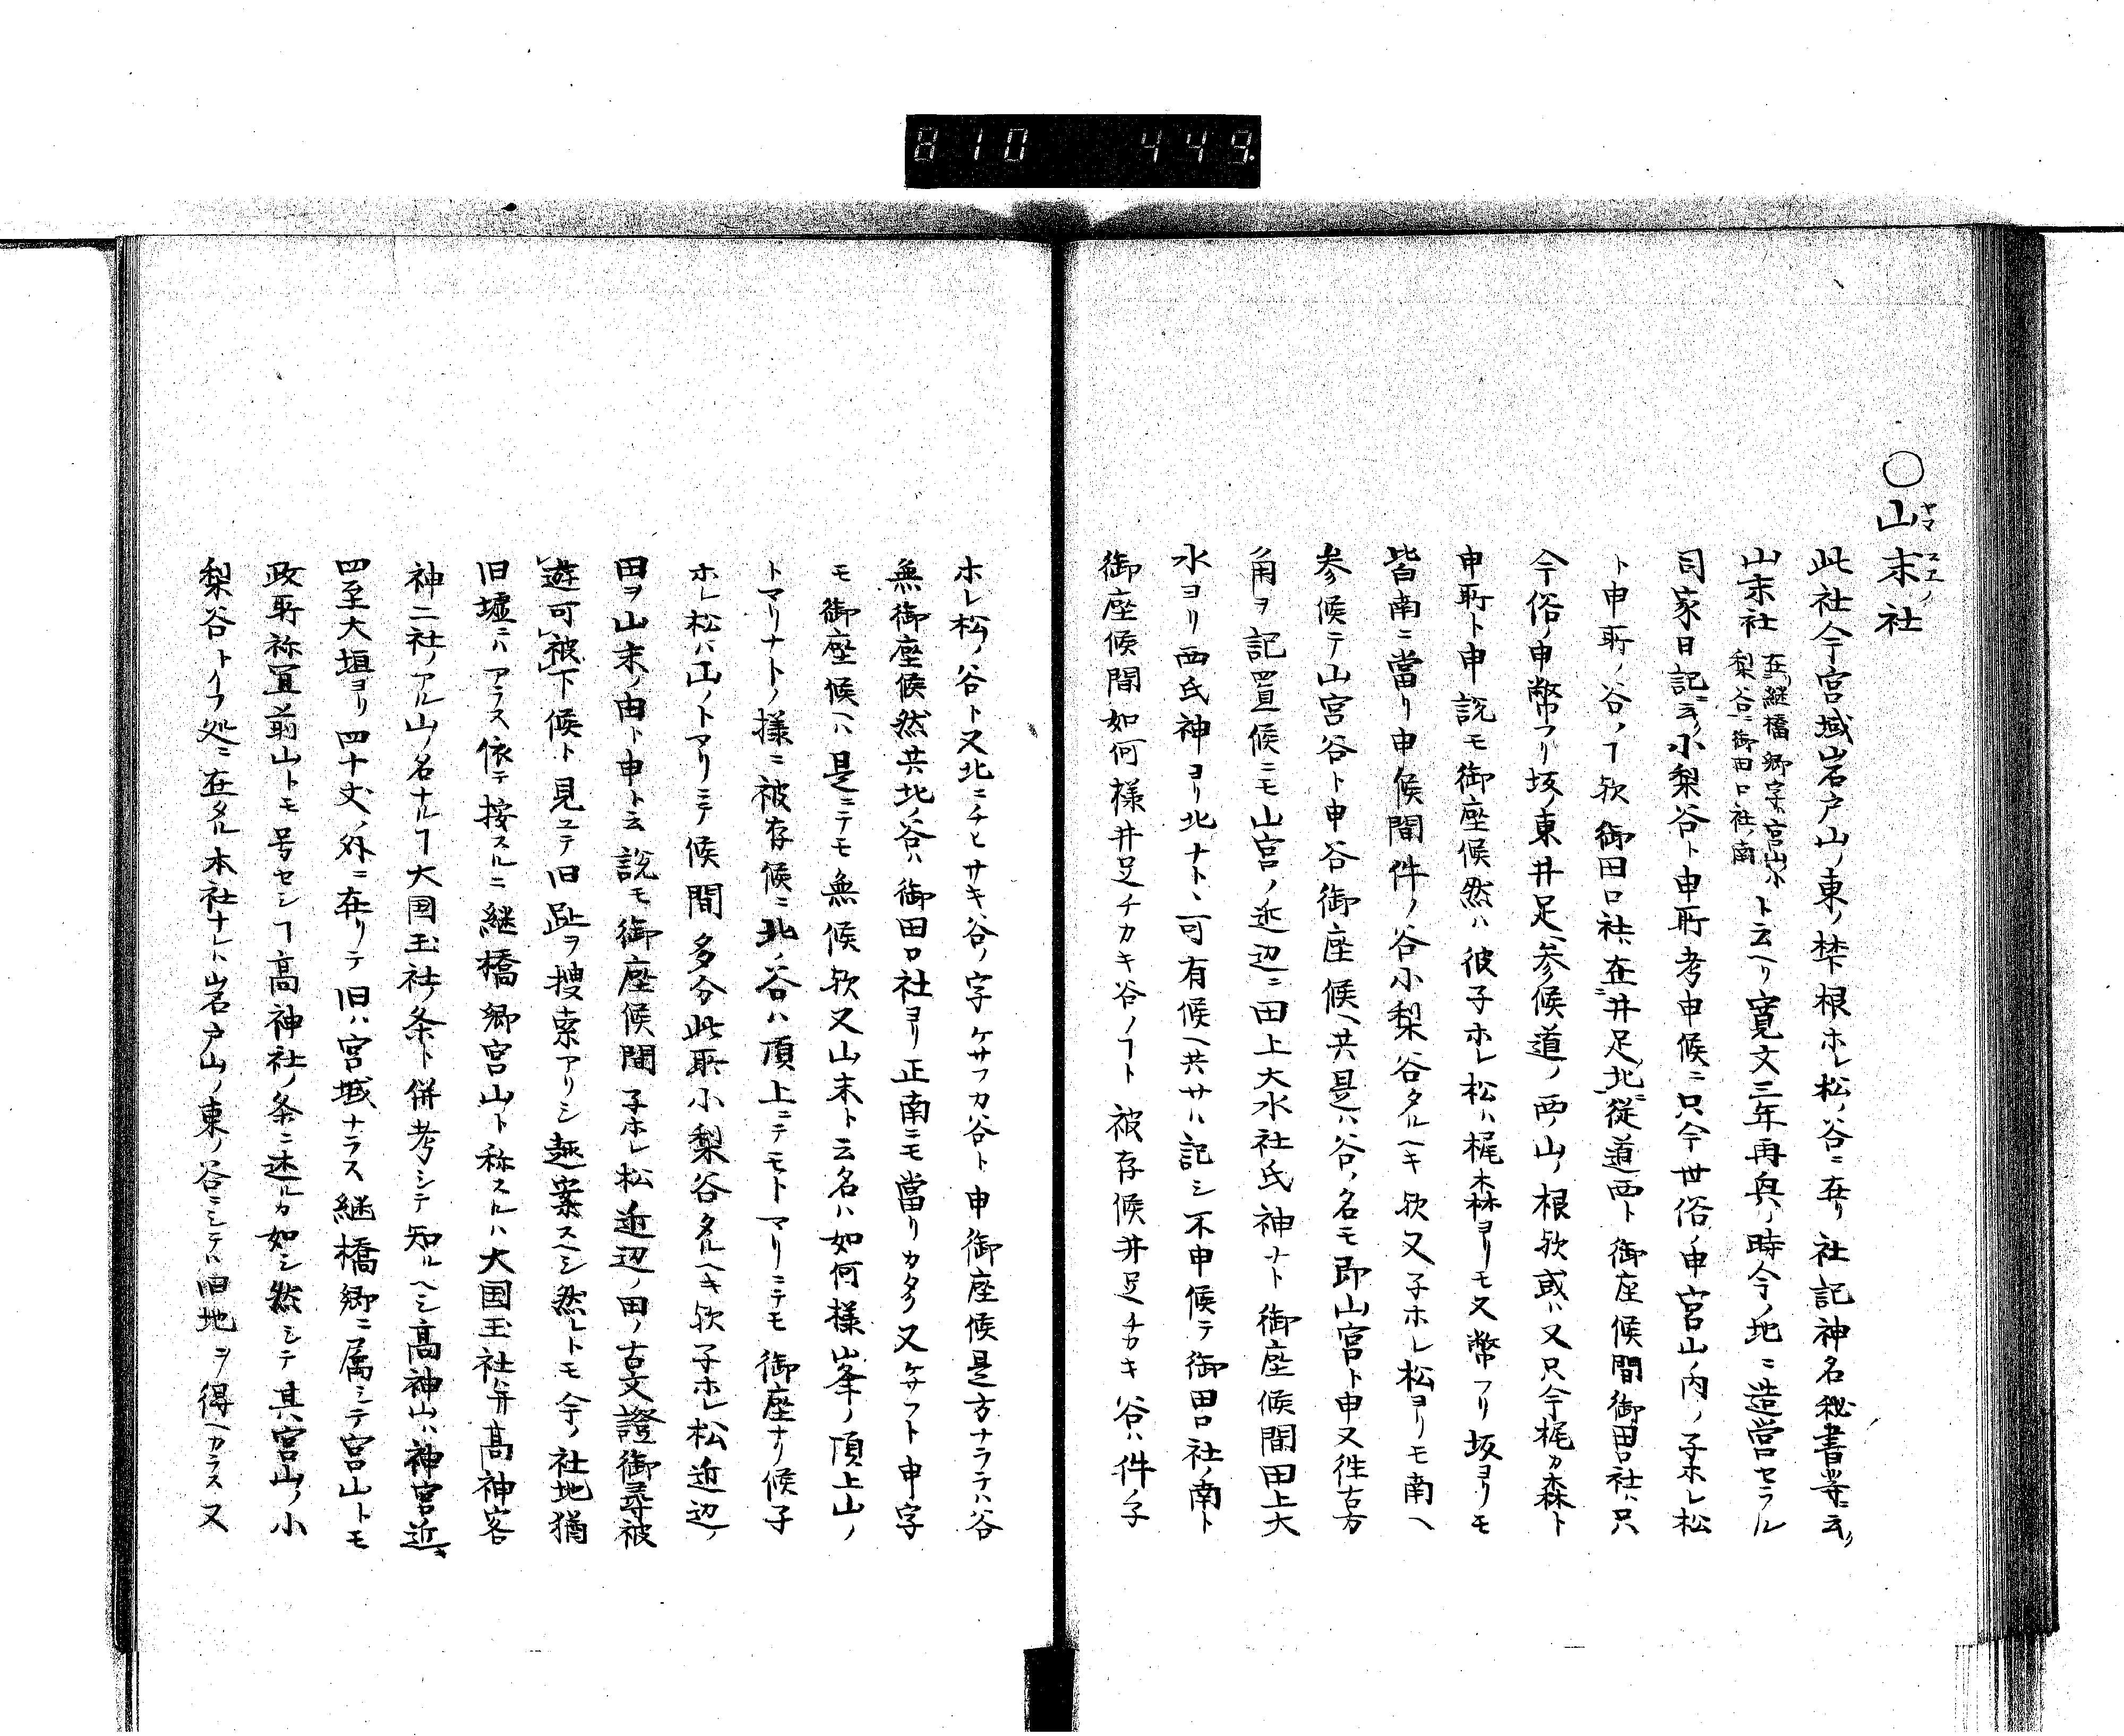 810 449.
○山末社
ヤマスエノ
此社今宮域岩戸山ノ東ノ梺根ホレ松ノ谷ニ在リ社記神名秘書等ニ云ク
山末社在継橋郷字宮山小梨谷ニ御田口社ノ南ト云ヘリ寛文三年再興ノ時今ノ地ニ造営セラル
司家日記ニ云ク小梨谷ト申所考申候ニ只今世俗ノ申宮山ノ内ノ子ホレ松
ト申所ノ谷ノヿ欤御田口社ハ在井足北従道西ト御座候間御田口社ハ只
今俗ノ申幣フリ坂ノ東井足ヘ参候道ノ西ノ山ノ根欤或ハ又只今梶カ森ト
申所ト申説モ御座候然ハ彼子ホレ松ハ梶森ヨリモ又幣フリ坂ヨリモ
皆南ニ當リ申候間件ノ谷小梨谷タルヘキ欤又子ホレ松ヨリモ南ヘ
参候テ山宮谷ト申谷御座候ヘ共是ハ谷ノ名モ即山宮ト申又徃古方
角ヲ記置候ニモ山宮ノ近辺ニ田上大水社氏神ナト御座候間田上大
水ヨリ西氏神ヨリ北ナトヽ可有候ヘ共サハ記シ不申候テ御田口社ノ南ト
御座候間如何様井足チカキ谷ノヿト被存候井足チカキ谷ハ件子
ホレ松ノ谷ト又北ニチヒサキ谷ノ字ケサフカ谷ト申御座候是方ナラテハ谷
無御座候然共北ノ谷ハ御田口社ヨリ正南ニモ當リカタク又ケサフト申字
モ御座候ヘハ是ニテモ無候欤又山末ト云名ハ如何様峯ノ頂上山ノ
トマリナトノ様ニ被存候ニ北ノ谷ハ頂上ニテモトマリニテモ御座ナリ候子
ホレ松ハ山ノトマリニテ候間多分此所小梨谷タルヘキ欤子ホレ松近辺ノ
田ヲ山末ノ由ト申ト云説モ御座候間子ホレ松近辺ノ田ノ古文證御尋被
遊可被下候ト見ユテ旧趾ヲ捜索アリシ趣案スヘシ然レトモ今ノ社地猶
旧墟ニハアラス依テ按スルニ継橋郷宮山ト称スルハ大国玉社并高神客
神二社ノアル山ノ名ナルヿ大国玉社ノ条ト併考シテ知ルヘシ高神山ハ神宮近キ
四至大垣ヨリ四十丈ノ外ニ在リテ旧ハ宮域ナラス継橋郷ニ属シテ宮山トモ
政所祢宜前山トモ号セシヿ高神社ノ条ニ述ルカ如シ然シテ其宮山ノ小
梨谷トイフ処ニ在タル本社ナレハ岩戸山ノ東ノ谷ニシテハ旧地ヲ得ヘカラス又